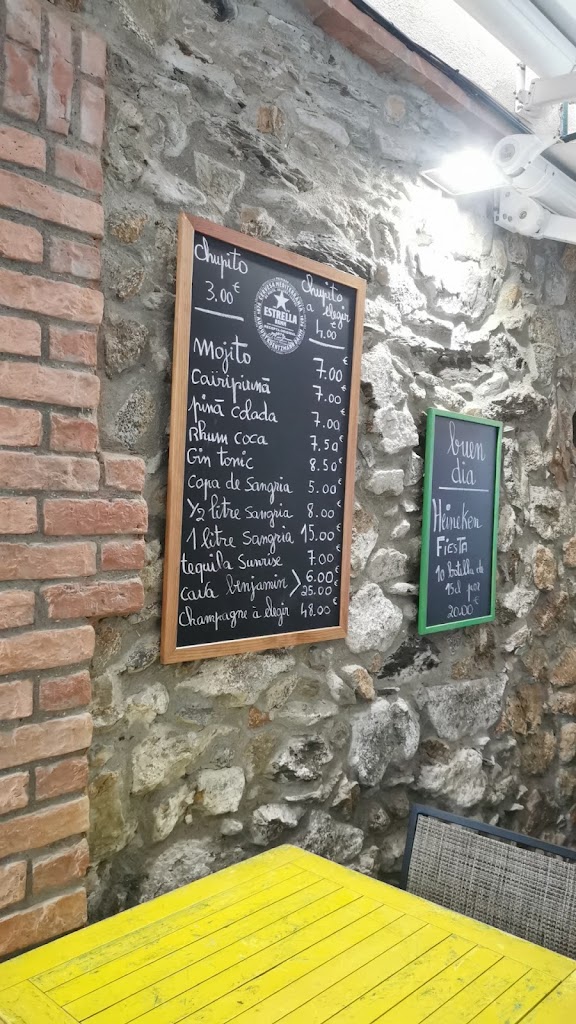 chupito
3.00€
chupito
a elegir
4.00€
CERVEZA MEDITERRÁNEA
ESTRELLA
DAMM
AUGUST KUENTZMANN DAMM
Mojito 7.00€
Caïripiurnã 7.00€
pinã colada 7.00
Rhum coca 7.50€
Gin tonic 8.50€
copa de Sangria 5.00€
1/2 litre Sangria 8.00€
1 litre Sangria 15.00€
tequila Sunrise 7.00€
cava benjamin > 6.00€
25.00€
Champagne à elegir 48.00€
buen
dia
Heineken
FiESTA
10 Botella de
15cl para
20.00€